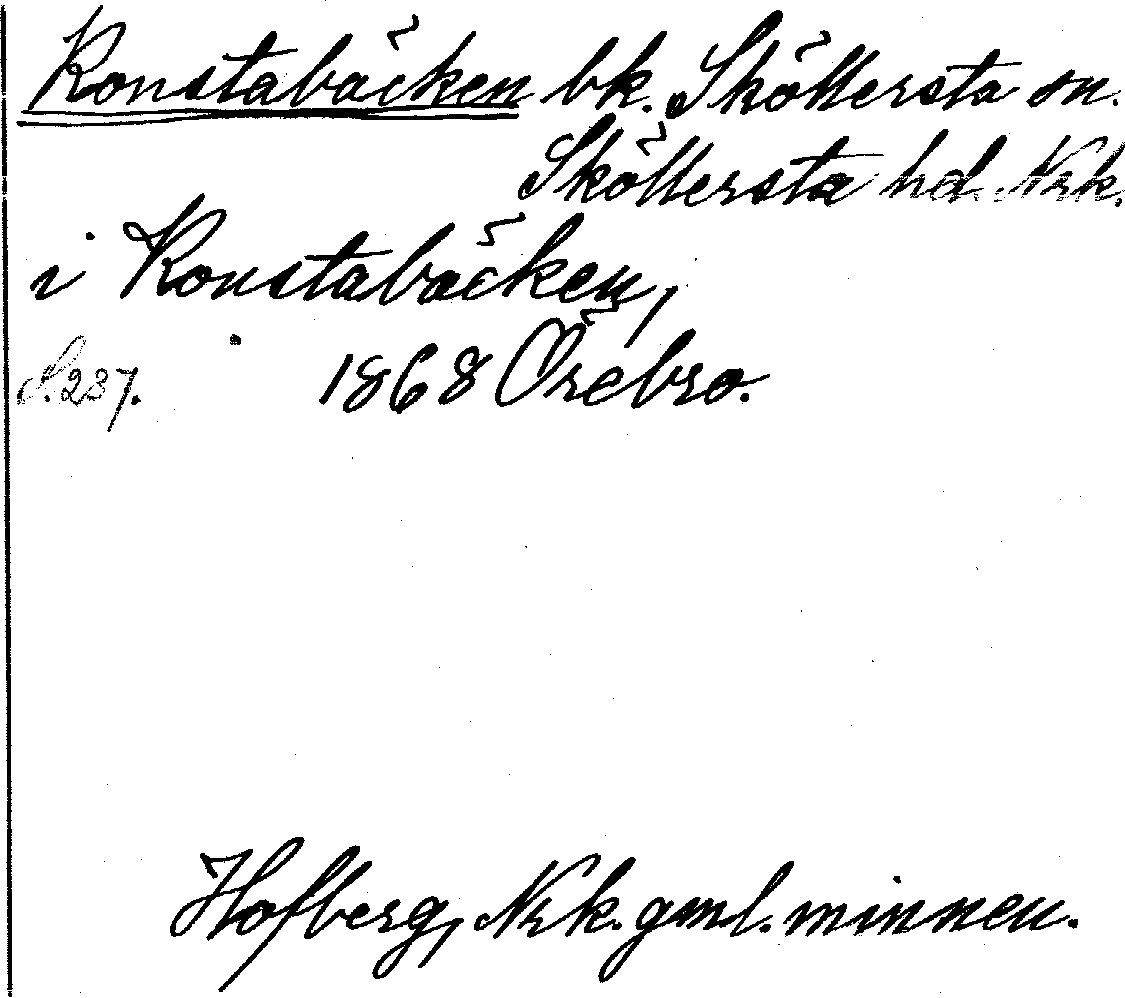 Konstabäcken bk. Sköllersta sn.
Sköllersta hd. Nrk.
i Konstabäcken,
S. 237. 1868 Örebro.
Hofberg, Nrk. gml. minnen.